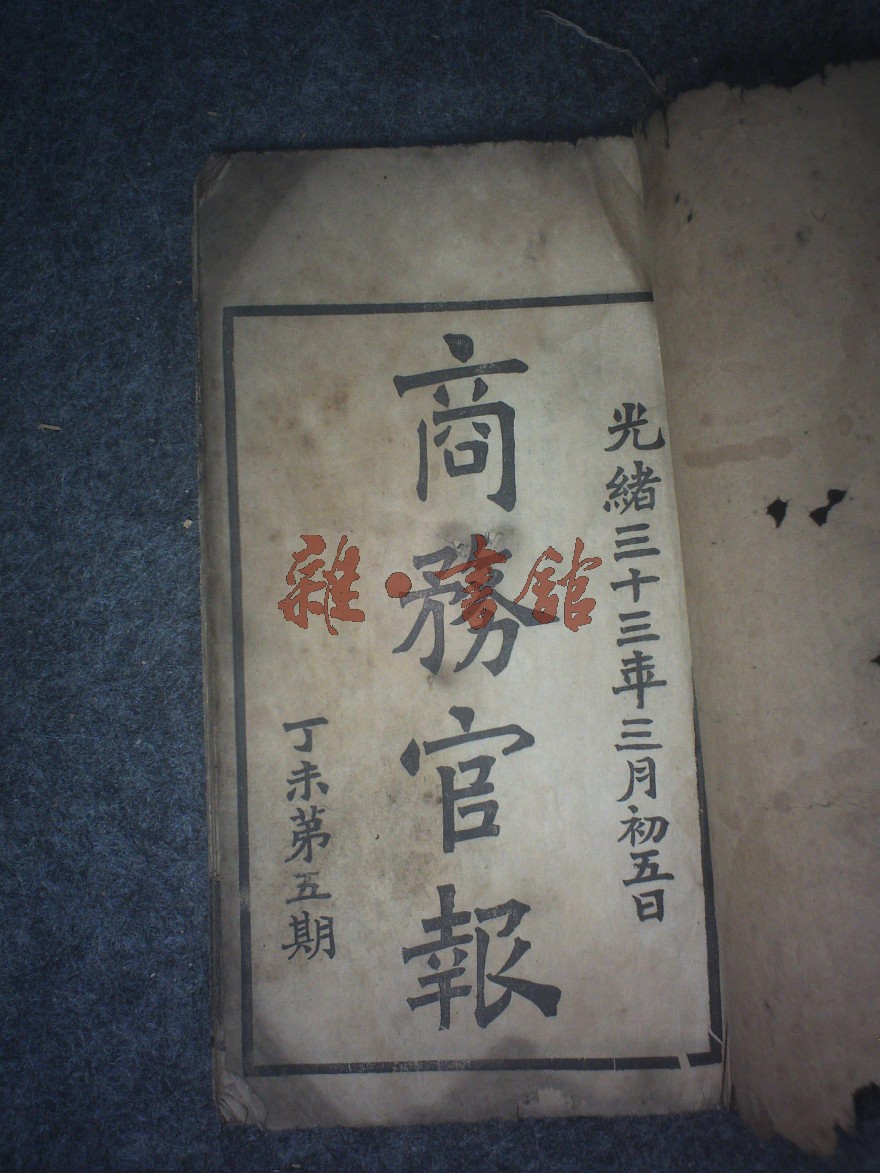 光緒三十三年三月初五日
商務官報
丁未第五期
雜·書館